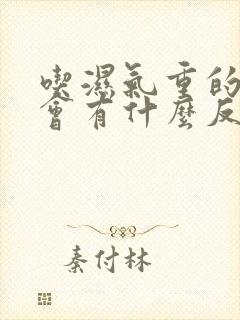 喫濕氣重的
會有什麼反
秦付林